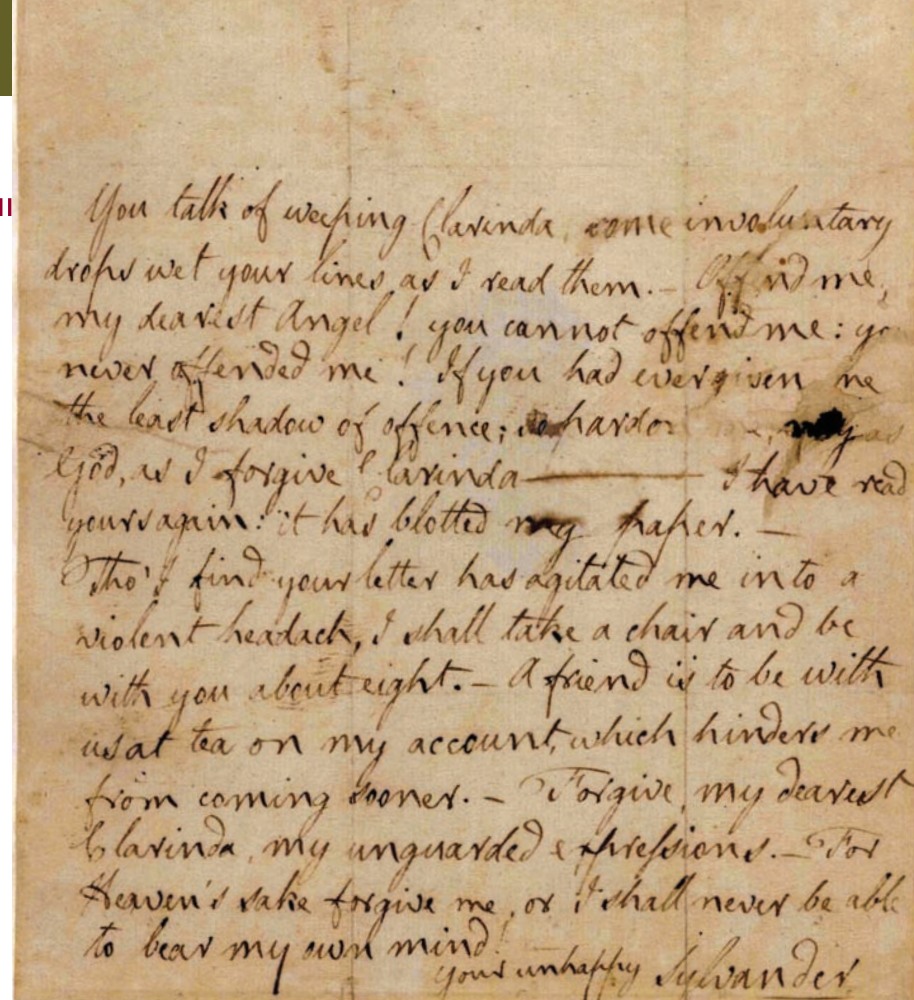 You talk of weeping Clarinda, some involuntary
drops wet your lines as I read them. — Offend me,
my dearest Angel! you cannot offend me: yo
never offended me! If you had ever given me
the least shadow of offence; so pardon me, my
God, as I forgive Clarinda——— I have read
yours again: it has blotted my paper. —
Tho' I find your letter has agitated me into a
violent headach, I shall take a chair and be
with you about eight. — A friend is to be with
us at tea on my account, which hinders me
from coming sooner. — Forgive, my dearest
Clarinda, my unguarded expressions. — For
Heaven's sake forgive me, or I shall never be able
to bear my own mind!
your unhappy Sylvander